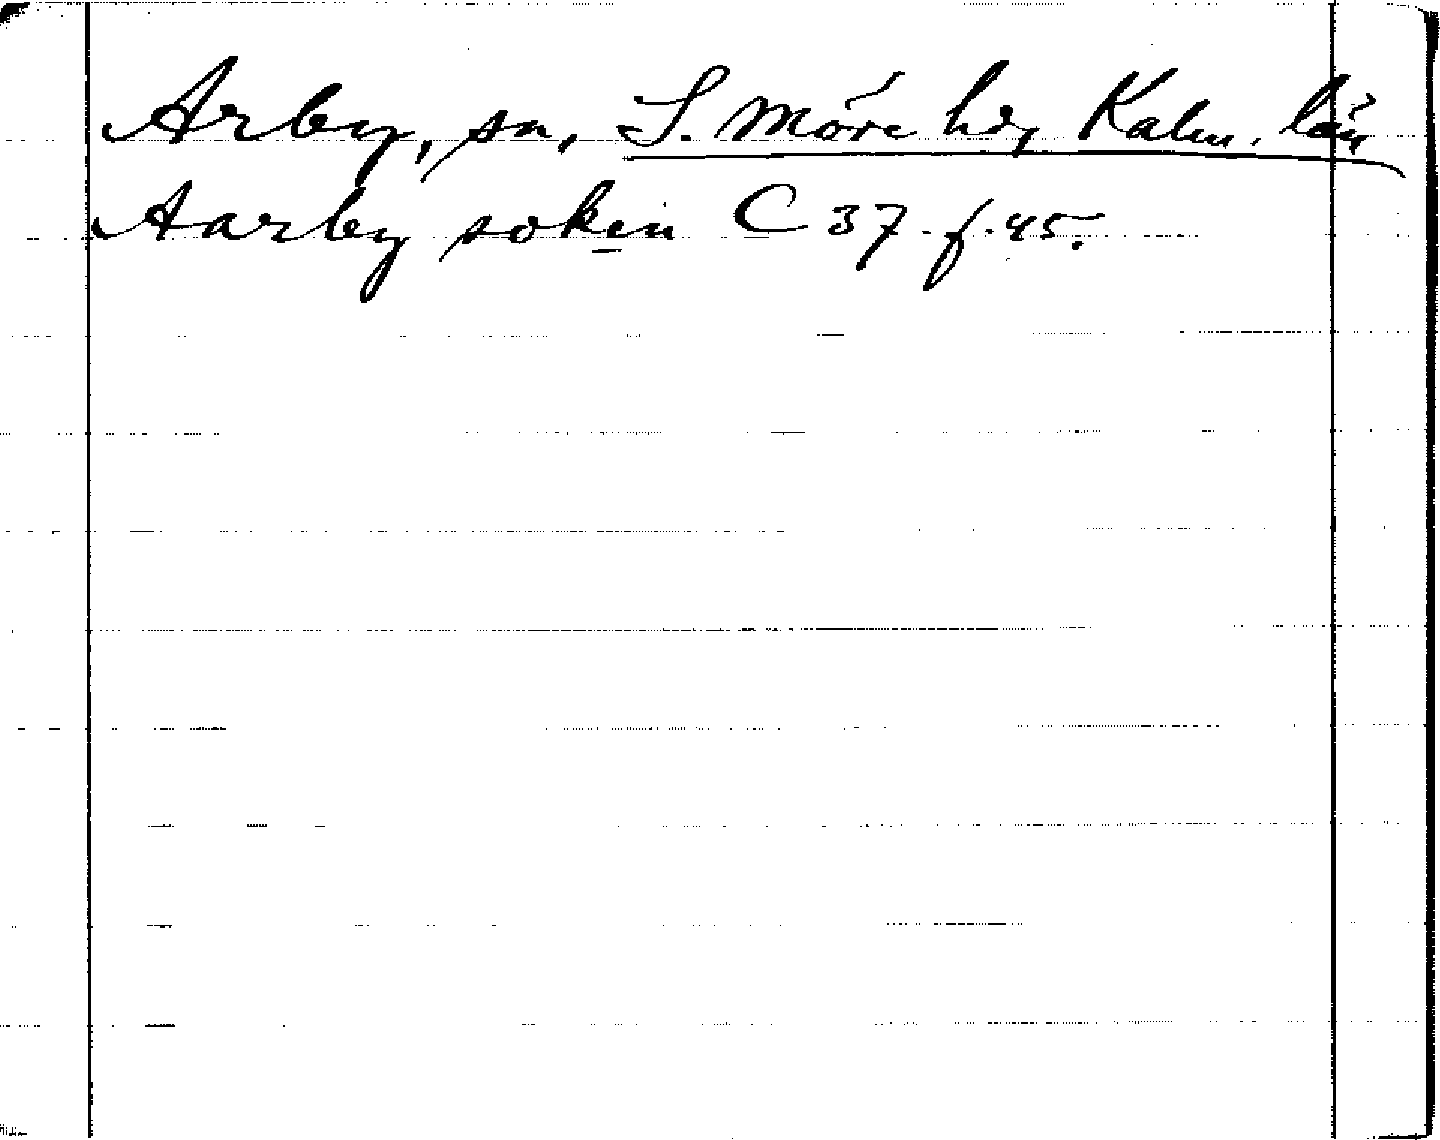 Arby, sn, S. Möre hd, Kalm. län
Aarby sokin C 37 f. 45.